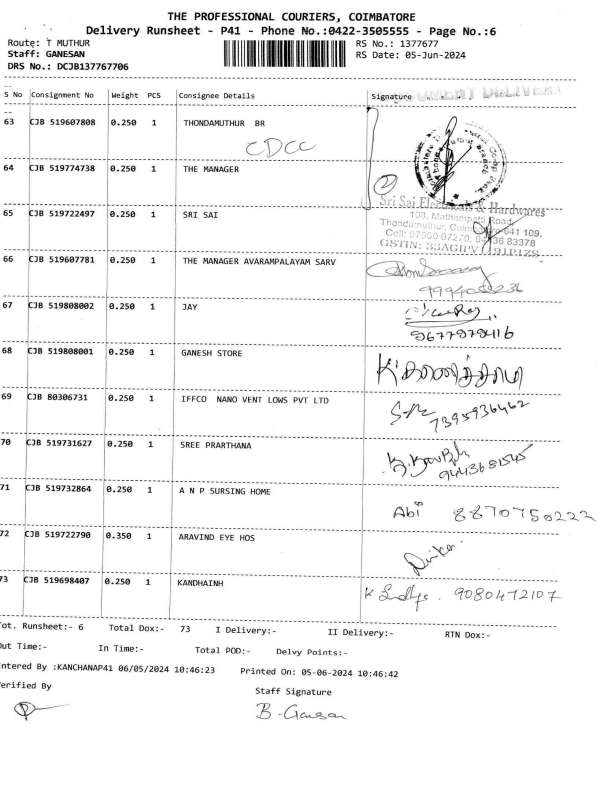 THE PROFESSIONAL COURIERS, COIMBATORE
Delivery Runsheet - P41 - Phone No.:0422-3505555 - Page No.:6
Route: T MUTHUR RS No.: 1377677
Staff: GANESAN RS Date: 05-Jun-2024
DRS No.: DCJB137767706
S No Consignment No Weight PCS Consignee Details Signature
63 CJB 519607808 0.250 1 THONDAMUTHUR BR
CDCC
64 CJB 519774738 0.250 1 THE MANAGER
2
Sri Sai & Hardwares
65 CJB 519722497 0.250 1 SRI SAI
103, Mathampatti Road,
Thondamuthur, 641 109.
Cell: 07500 07270, 83378
GSTIN:
66 CJB 519607781 0.250 1 THE MANAGER AVARAMPALAYAM SARV
67 CJB 519808002 0.250 1 JAY
9677979416
68 CJB 519808001 0.250 1 GANESH STORE
69 CJB 80306731 0.250 1 IFFCO NANO VENT LOWS PVT LTD
7395936462
70 CJB 519731627 0.250 1 SREE PRARTHANA
9443681545
71 CJB 519732864 0.250 1 A N P SURSING HOME
Abi 8870750222
72 CJB 519722790 0.350 1 ARAVIND EYE HOS
73 CJB 519698407 0.250 1 KANDHAINH
9080472107
Tot. Runsheet:- 6 Total Dox:- 73 I Delivery:- II Delivery:- RTN Dox:-
Out Time:- In Time:- Total POD:- Delvy Points:-
Entered By :KANCHANAP41 06/05/2024 10:46:23 Printed On: 05-06-2024 10:46:42
Verified By Staff Signature